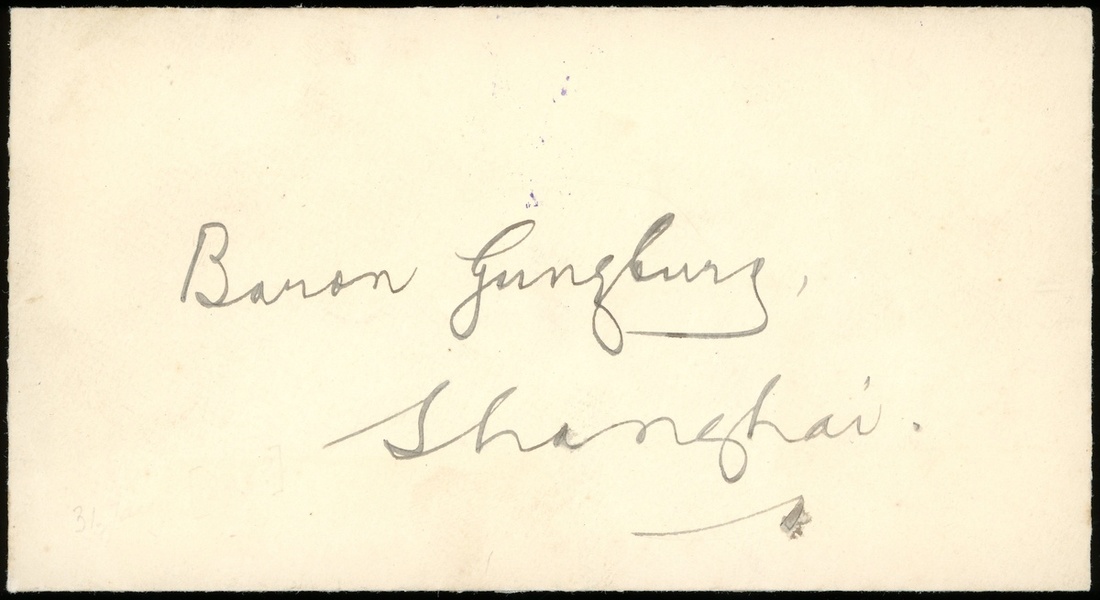 Baron Gungburg,
Shanghai.
31